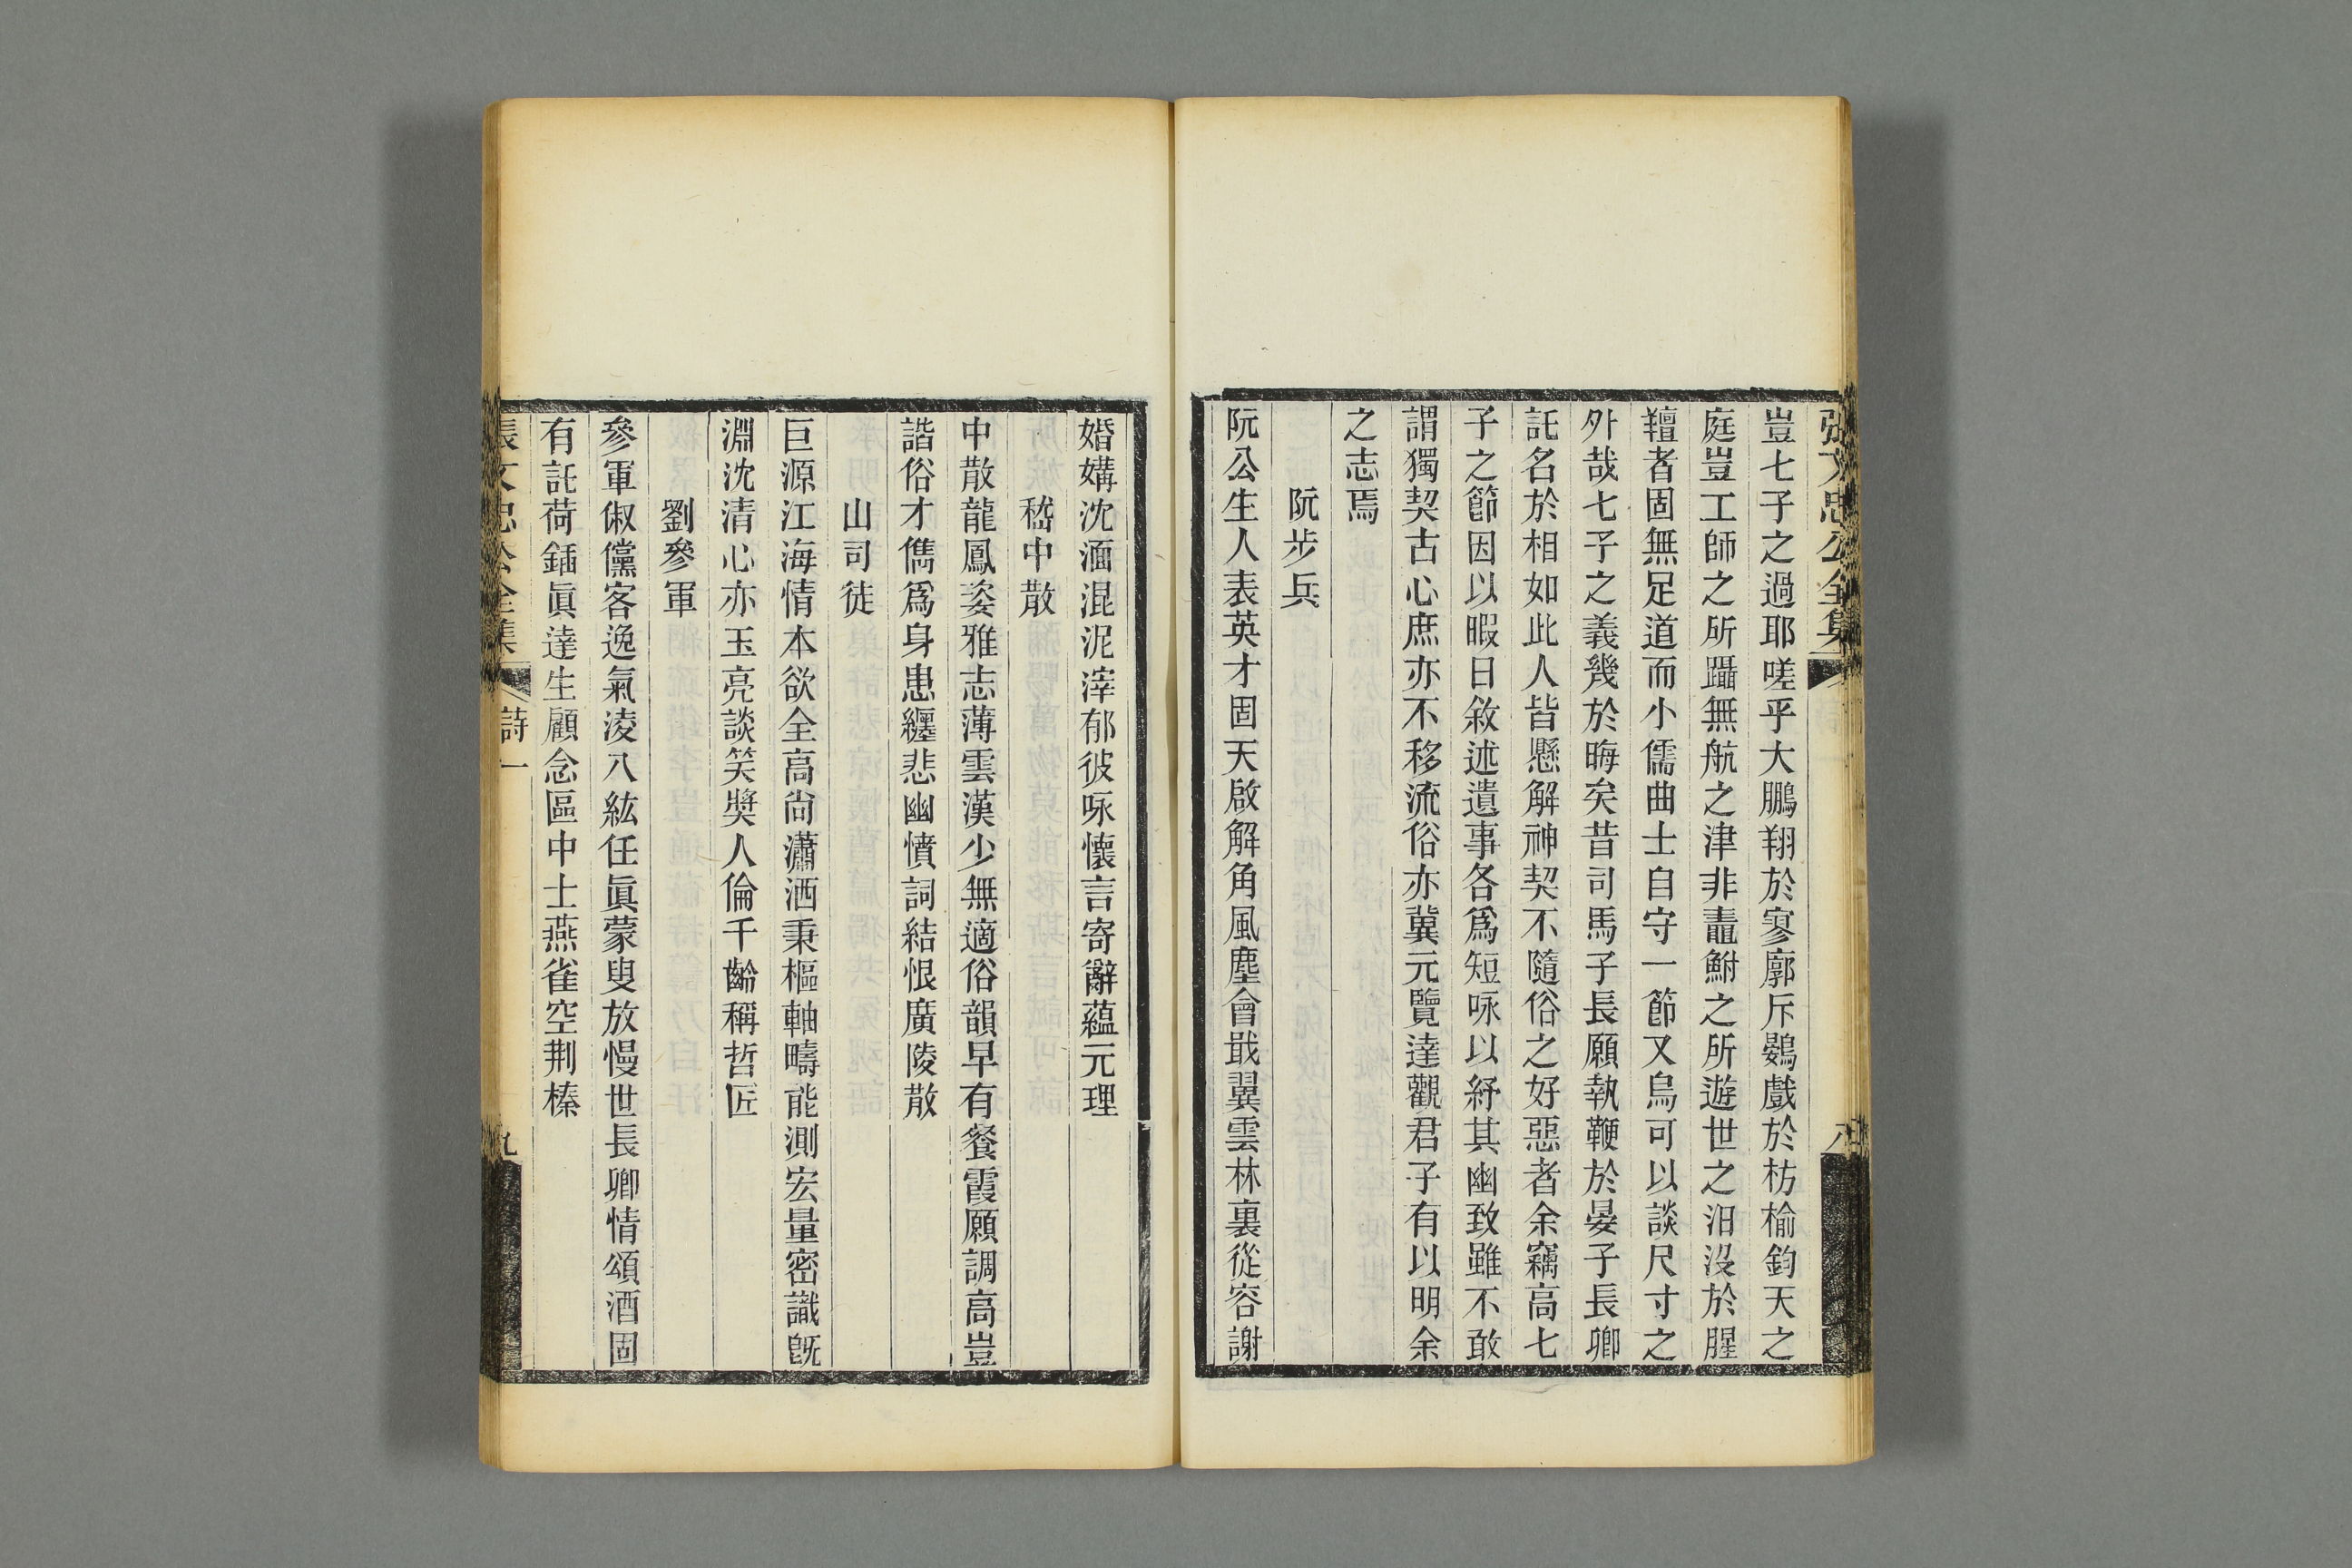 張文忠公全集
八
豈七子之過耶嗟乎大鵬翔於寥廓斥鷃戲於枋榆鈞天之
庭豈工師之所躡無航之津非鼃鮒之所遊世之汨沒於腥
羶者固無足道而小儒曲士自守一節又烏可以談尺寸之
外哉七子之義幾於晦矣昔司馬子長願執鞭於晏子長卿
託名於相如此人皆懸解神契不隨俗之好惡者余竊高七
子之節因以暇日敘述遺事各爲短咏以紓其幽致雖不敢
謂獨契古心庶亦不移流俗亦冀元覽達觀君子有以明余
之志焉
阮步兵
阮公生人表英才固天啟解角風塵會戢翼雲林裏從容謝
婚媾沈湎混泥滓郁彼咏懷言寄辭蘊元理
嵇中散
中散龍鳳姿雅志薄雲漢少無適俗韻早有餐霞願調高豈
諧俗才儁爲身患纏悲幽憤詞結恨廣陵散
山司徒
巨源江海情本欲全高尙瀟洒秉樞軸疇能測宏量密識旣
淵沈清心亦玉亮談笑奬人倫千齡稱哲匠
劉參軍
參軍俶儻客逸氣淩八紘任眞蒙叟放慢世長卿情頌酒固
有託荷鍤眞達生顧念區中士燕雀空荆榛
張文忠公全集
詩一
九